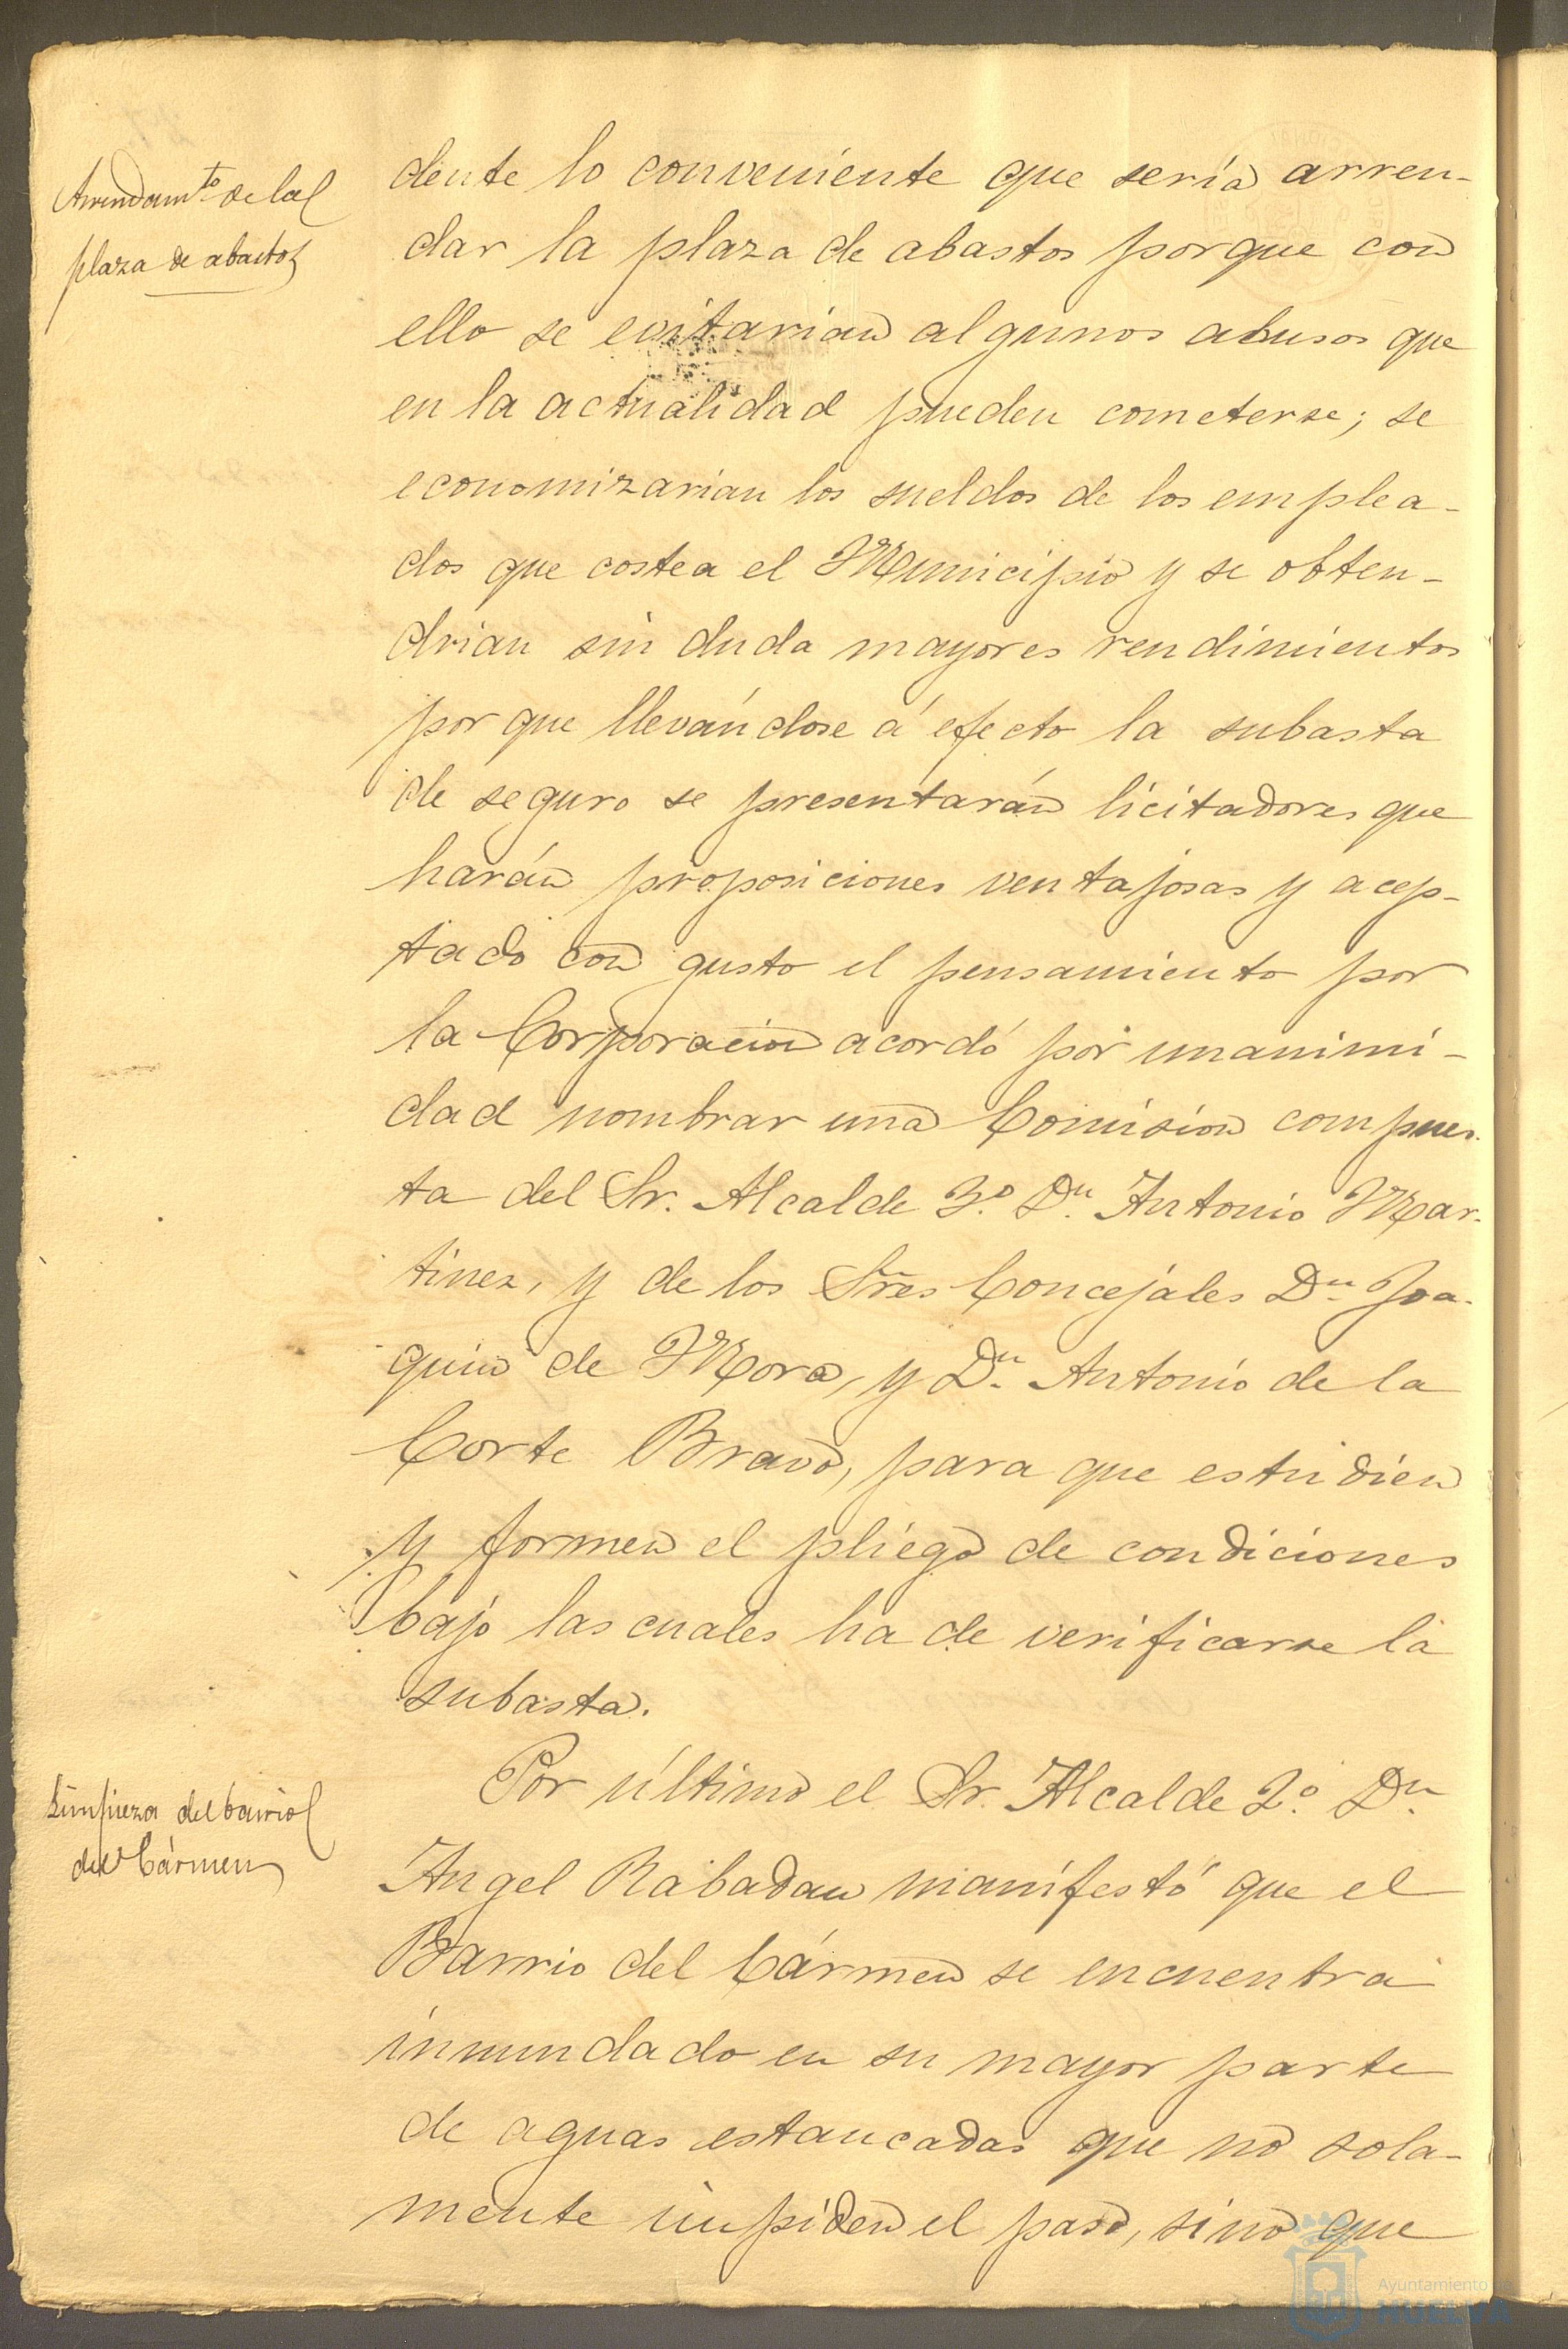 Arrendamto de la
plaza de abastos
dente lo conveniente que sería arren-
dar la plaza de abastos porque con
ello se evitarian algunos abusos que
en la actualidad pueden cometerse; se
economizarian los sueldos de los emplea-
dos que costea el Municipio y se obten-
drian sin duda mayores rendimientos
por que llevándose á efecto la subasta
de seguro se presentarán licitadores que
harán proposiciones ventajosas y acep-
tado con gusto el pensamiento por
la Corporacion acordó por unanimi-
dad nombrar una Comision compues-
ta del Sr. Alcalde 3º Dn Antonio Mar-
tinez, y de los Sres Concejales Dn Joa-
quin de Mora, y Dn Antonio de la
Corte Bravo, para que estudien
y formen el pliego de condiciones
bajo las cuales ha de verificarse la
subasta.
Limpieza del barrio
del Cármen
Por último el Sr. Alcalde 2º Dn
Angel Rabadan manifestó que el
Barrio del Cármen se encuentra
inundado en su mayor parte
de aguas estancadas que no sola-
mente impiden el paso, sino que
Ayuntamiento de
HUELVA